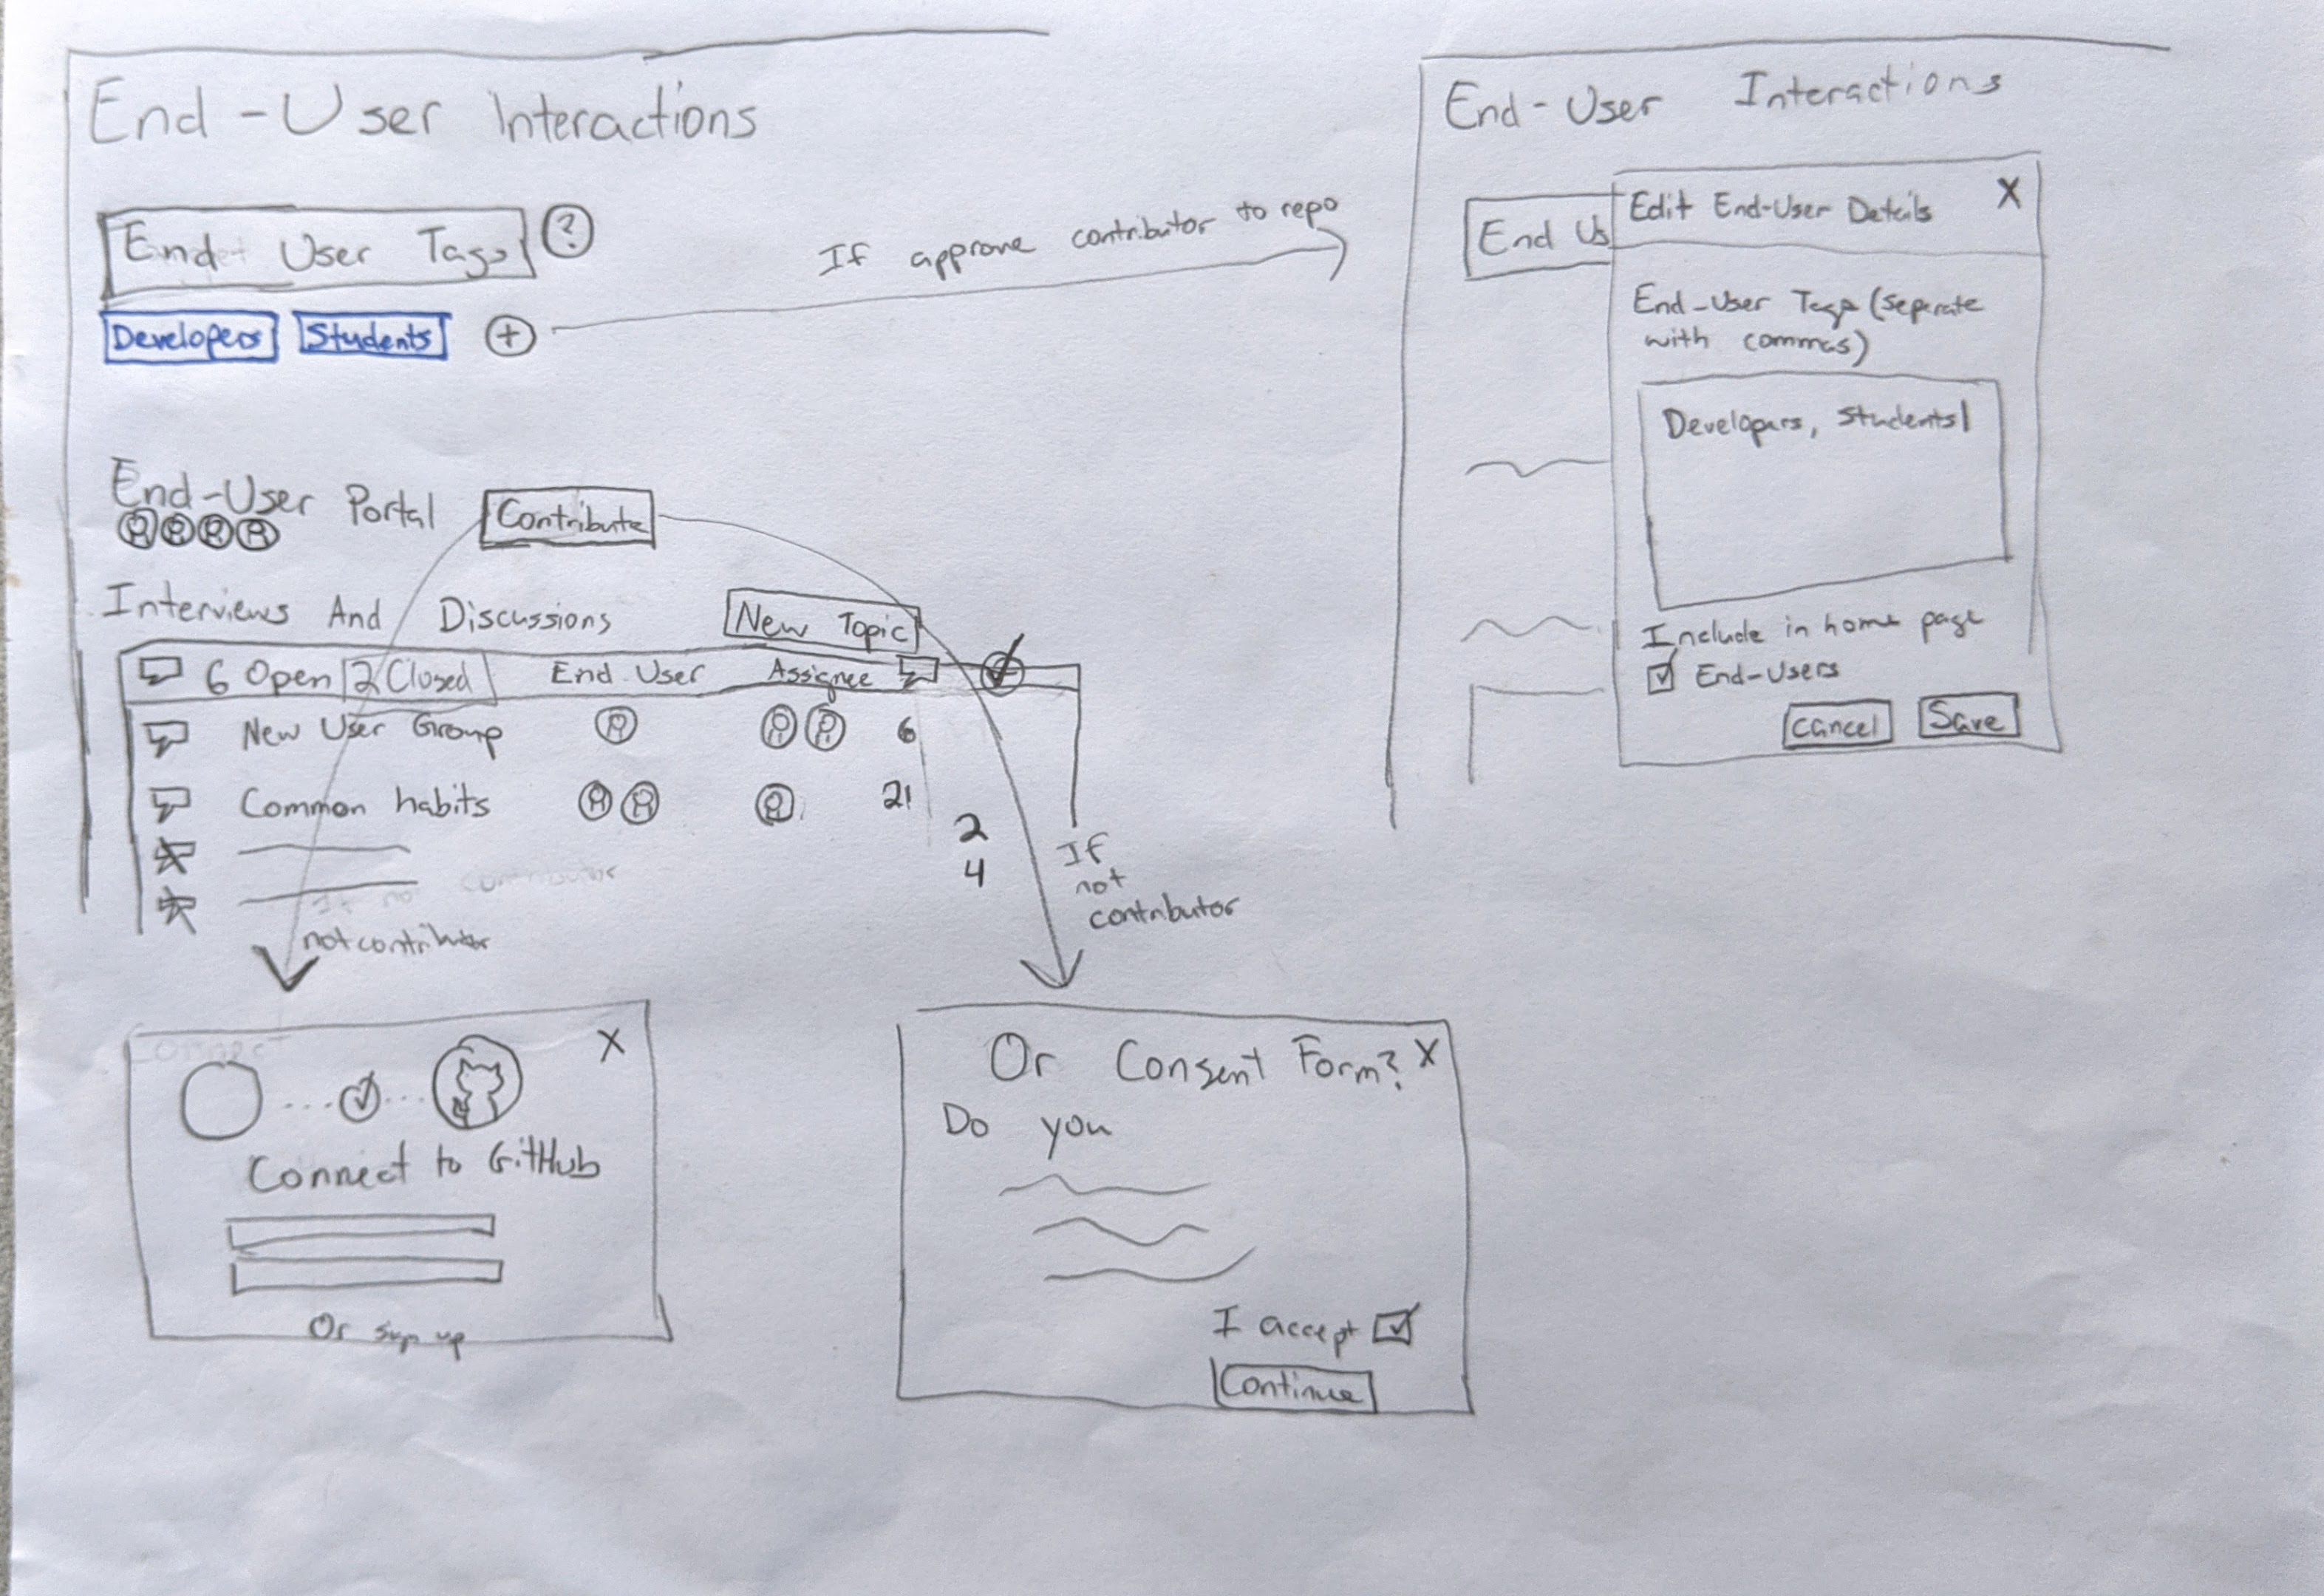 End-User Interactions
End User Tags ?
If approve contributor to repo
Developers Students +
End-User Portal Contribute
Interviews And Discussions New Topic
6 Open 2 Closed End User Assignee
New User Group 6
Common habits 21
2
4
If
not
contributor
If no contributor
not contributor
X
Connect to GitHub
Or sign up
Or Consent Form? X
Do you
I accept
Continue
End-User Interactions
End Us
Edit End-User Details X
End-User Tags (separate
with commas)
Developers, Students
Include in home page
End-Users
Cancel Save